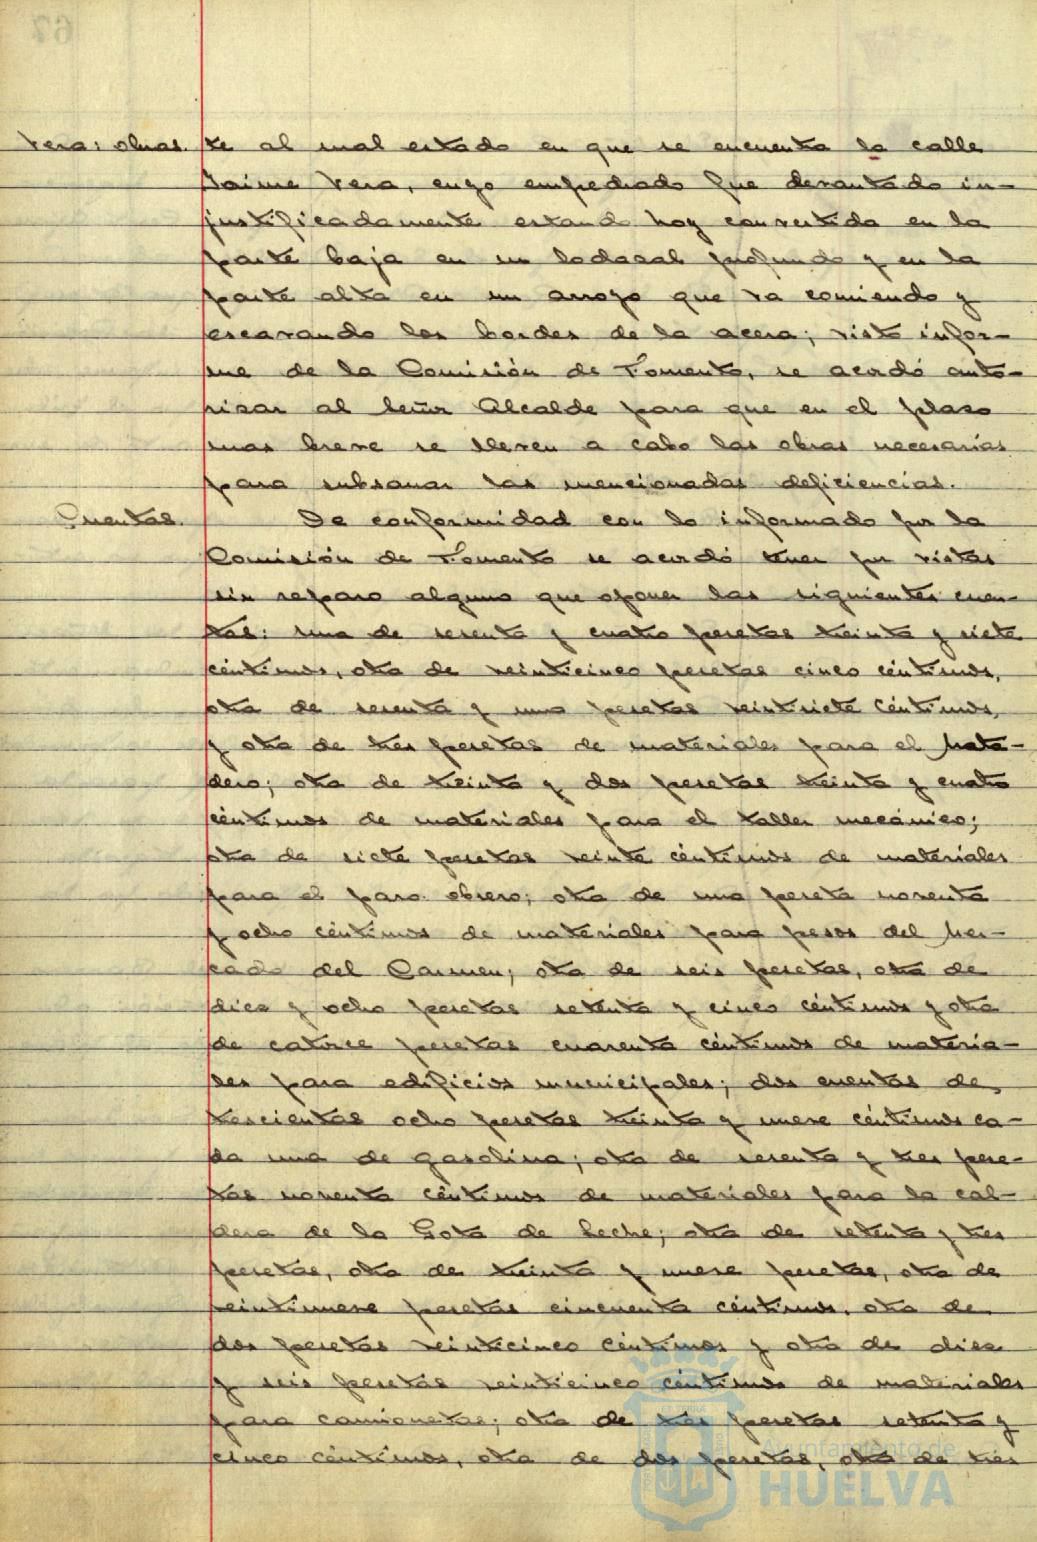 Vera: obras. te al mal estado en que se encuentra la calle
Jaime Vera, cuyo empedrado fue levantado in-
justificadamente estando hoy convertida en la
parte baja en un lodazal profundo y en la
parte alta en un arroyo que va comiendo y
escavando los bordes de la acera; visto infor-
me de la Comisión de Fomento, se acordó auto-
rizar al Señor Alcalde para que en el plazo
mas breve se lleven a cabo las obras necesarias
para subsanar las mencionadas deficiencias.
Cuentas. De conformidad con lo informado por la
Comisión de Fomento se acordó tener por vistas
sin reparo alguno que oponer las siguientes cuen-
tas: una de sesenta y cuatro pesetas treinta y siete
céntimos, otra de veinticinco pesetas cinco céntimos,
otra de sesenta y una pesetas veintisiete céntimos,
y otra de tres pesetas de materiales para el Mata-
dero; otra de treinta y dos pesetas treinta y cuatro
céntimos de materiales para el taller mecánico;
otra de siete pesetas veinte céntimos de materiales
para el paro obrero; otra de una peseta noventa
y ocho céntimos de materiales para pesos del Mer-
cado del Carmen; otra de seis pesetas, otra de
diez y ocho pesetas setenta y cinco céntimos y otra
de catorce pesetas cuarenta céntimos de materia-
les para edificios municipales; dos cuentas de
trescientas ocho pesetas treinta y nueve céntimos ca-
da una de gasolina; otra de sesenta y tres pese-
tas noventa céntimos de materiales para la cal-
dera de la Gota de Leche; otra de setenta y tres
pesetas, otra de treinta y nueve pesetas, otra de
veintinueve pesetas cincuenta céntimos, otra de
dos pesetas veinticinco céntimos y otra de diez
y seis pesetas veinticinco céntimos de materiales
para camionetas; otra de tres pesetas setenta y
cinco céntimos, otra de dos pesetas, otra de tres
Ayuntamiento de
HUELVA